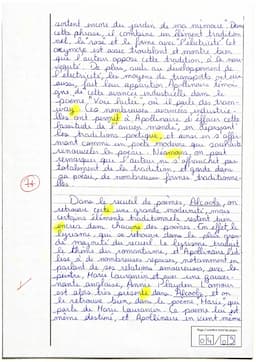 sortent encore du jardin de ma mémoire" Dans
cette phrase, il combine un élément tradition
nel, la rose et la femme avec "l'électricité" Cet
oxymore est assez troublant et montre bien
que l'auteur oppose cette tradition, à la nou
veauté. De plus, suite au développement de
l'électricité, les moyens de transports ont eux
aussi, fait leur apparition Apollinaire témoi
gne de cette avancée industrielle dans le
poème où il parle du tram-
way. Ces nombreuses avancées industrie-
lles ont permit à Apollinaire d'effacer cette
lassitude de l'ancien monde", en dépassant
les traditions poétiques, et ainsi en s'affir
mant comme un poète moderne qui souhaite
renouveler la poésie. Néamoins, on peut
remarquer que l'auteur ne s'affranchit pas
totalement de la tradition, et garde dans
sa poésie, de nombreuses formes traditionne-
lles.
Dans le recueil de poèmes, Alcools, on
retrouve certe une grande modernité, mais
certains éléments traditionnels restent bien
encrer dans chacuns des poèmes. En effet, le
lyrisme, qui se retrouve dans la plus gran
de majorité du recueil Le lyrisme traduit
le thème du romantisme, et Apollinaire fait
lieu à de nombreuses reprises, notamment en
parlant de ses relations amoureuses, avec la
peintre, Marie Laurencin et puis une gouver
nante anglaise, Annie Playden. L'amour
est alors très présente dans Alcools, et on
le retrouve bien, dans le poème, Marie, qui
parle de Marie Laurencin. Ce poème lui est
même destiné, et Apollinaire